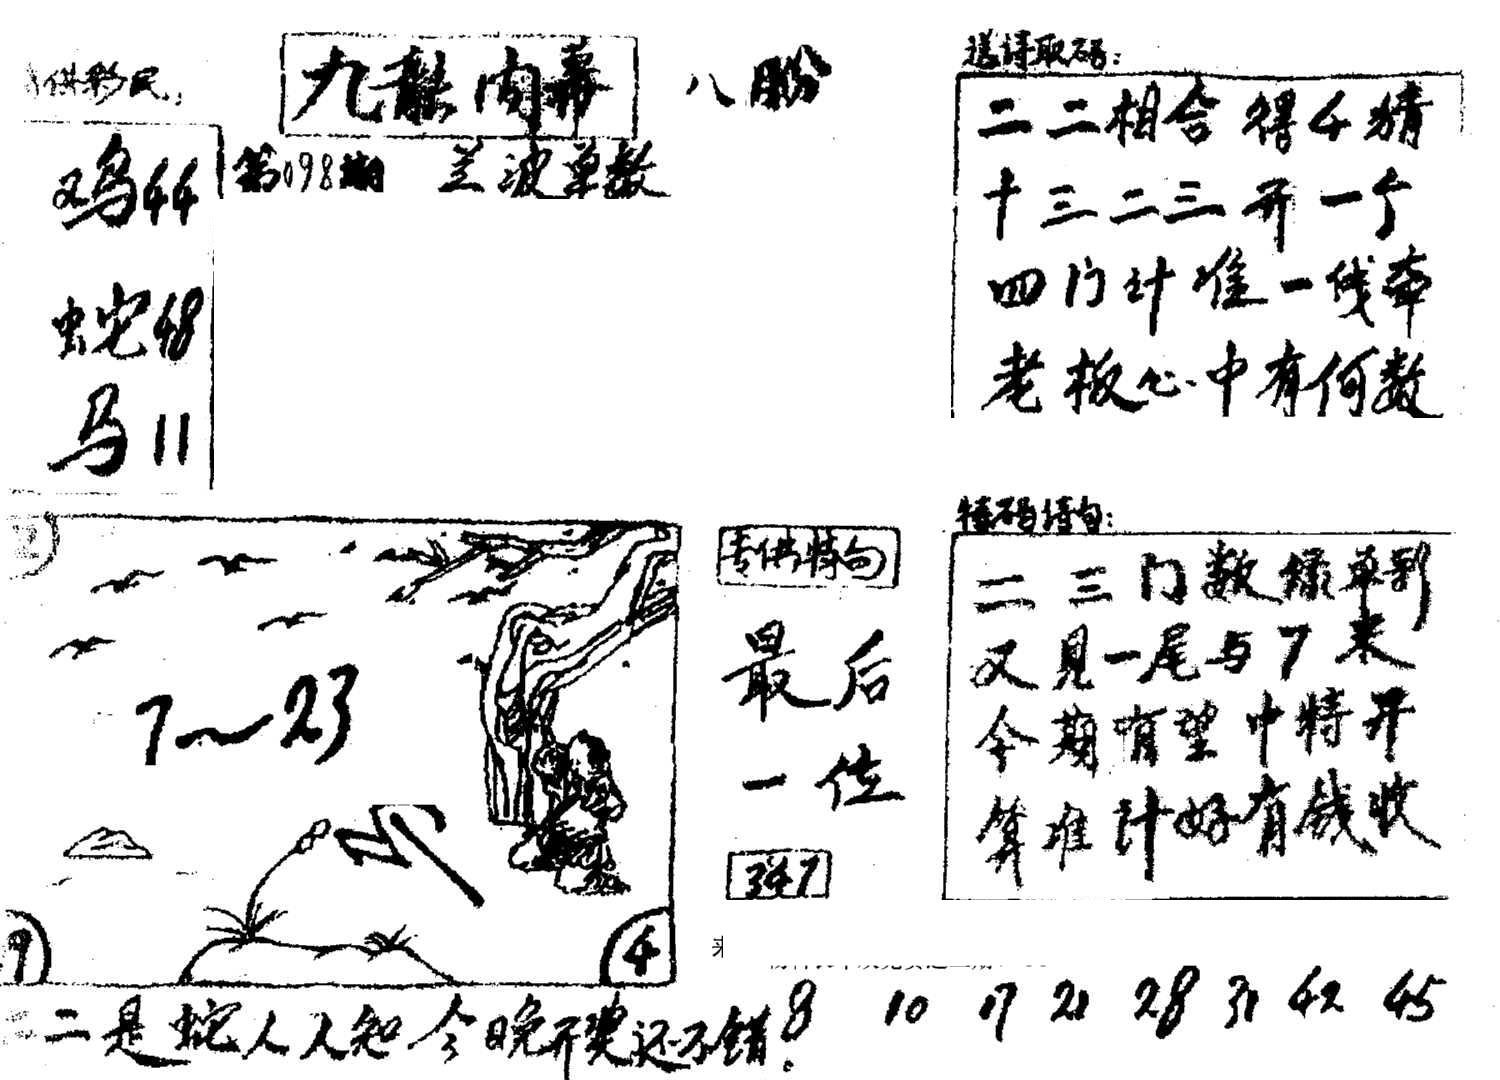 供彩民
九龍内幕
八股
鸡44
第098期
兰波单数
蛇48
马11
送诗取码：
二二相合得4猜
十三二三开一个
四门计准一线牵
老板心中有何数
7～23
9
4
专供特句
最后
一位
347
特码诗句：
二三门数绿单到
又見一尾与7来
今期有望中特开
算准計好有钱收
来
二是蛇人人知今晚开奖还不错！
8 10 17 21 28 31 42 45